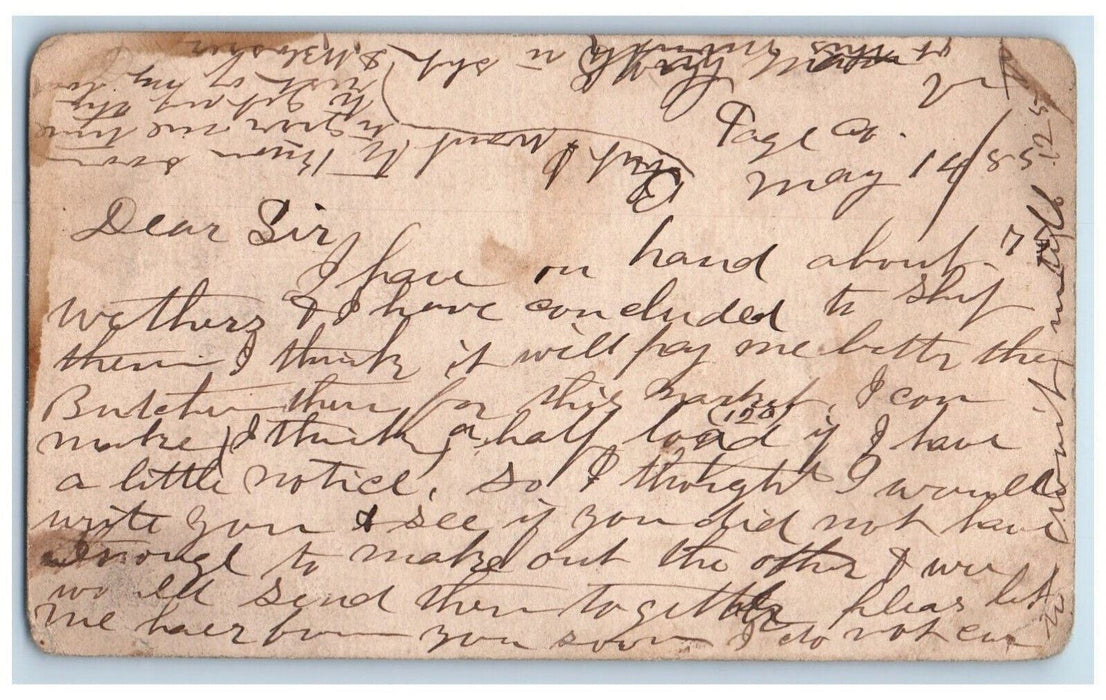 Page Co.
May 14/85
Dear Sir,
I have on hand about 75
wethers & I have concluded to ship
them I think it will pay me better then
Butcher them for this market, I can
make, I think, a half load (100) if I have
a little notice, so I thought I would
write you & see if you did not have
Enough to make out the other & we
would send them together pleas let
me hear from you soon I do not
want to
give me time
to get my
rest of my